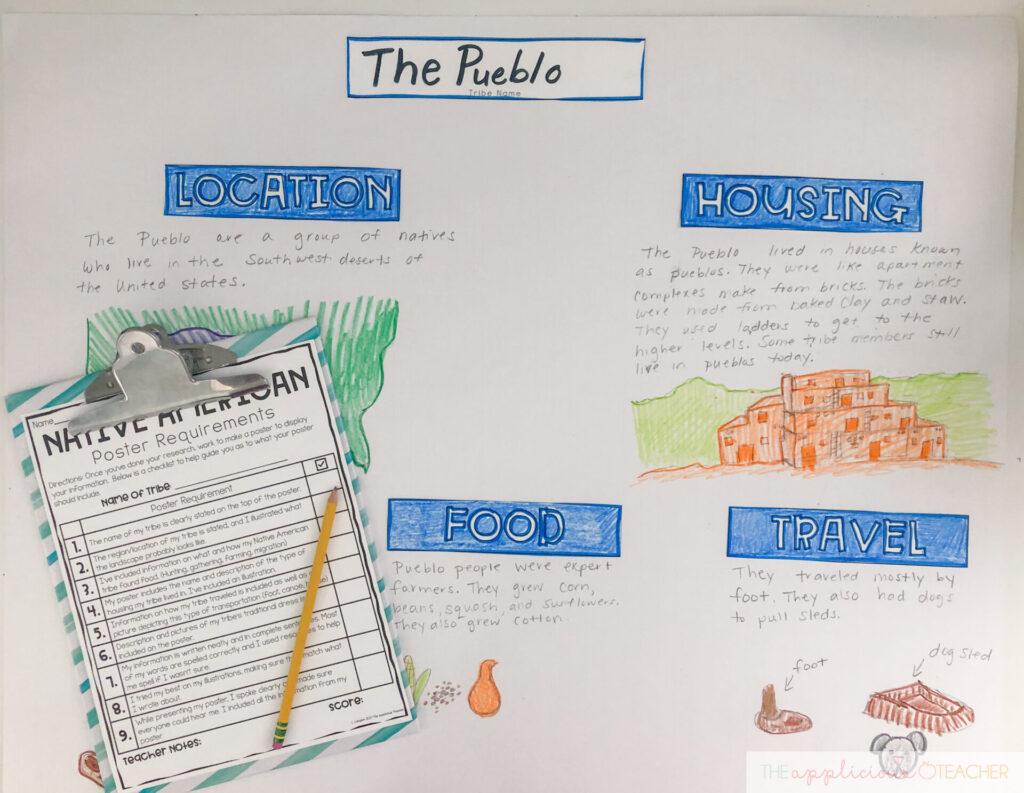 The Pueblo
Tribe Name
LOCATION
The Pueblo are a group of natives
who live in the southwest deserts of
the United states.
HOUSING
The Pueblo lived in houses known
as pueblos. They were like apartment
complexes make from bricks. The bricks
were made from baked clay and staw.
They used ladders to get to the
higher levels. Some tribe members still
live in pueblos today.
Name
NATIVE AMERICAN
Poster Requirements
Directions: Once you've done your research, work to make a poster to display
your information. Below is a checklist to help guide you as to what your poster
should include.
Name of Tribe
Poster Requirement
1. The name of my tribe is clearly stated on the top of the poster.
2. The region/location of my tribe is stated, and I illustrated what
the landscape probably looks like.
3. I've included information on what and how my Native American
tribe found food. (Hunting, gathering, farming, migration)
4. My poster includes the name and description of the type of
housing my tribe lived in. I've included an illustration.
5. Information on how my tribe traveled is included as well as
picture depicting this type of transportation (foot, canoe,
6. Description and pictures of my tribe's traditional dress is
included on the poster.
7. My information is written neatly and in complete sentences. Most
of my words are spelled correctly and I used resources to help
me spell if I wasn't sure.
8. I tried my best on my illustrations, making sure they match what
I wrote about.
9. While presenting my poster, I spoke clearly made sure
everyone could hear me. I included all the information from my
poster.
Score:
Teacher Notes:
FOOD
Pueblo people were expert
farmers. They grew corn,
beans, squash, and sunflowers.
They also grew cotton.
TRAVEL
They traveled mostly by
foot. They also had dogs
to pull sleds.
foot
dog sled
THE applicious TEACHER